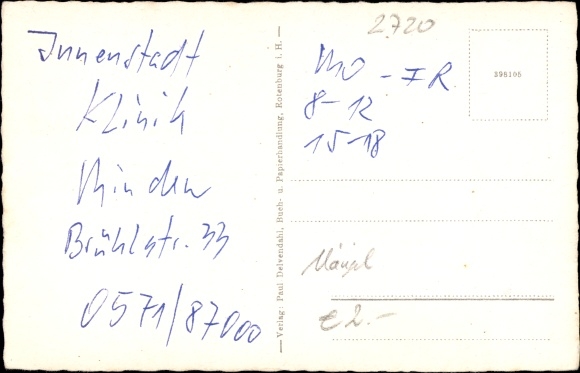 Innenstadt
Klinik
Minden
Brühlstr. 33
0571/87000
Verlag: Paul Delvendahl, Buch- u. Papierhandlung, Rotenburg i. H.
2720
Mo - FR
8-12
15-18
398106
Mängel
€ 2.-